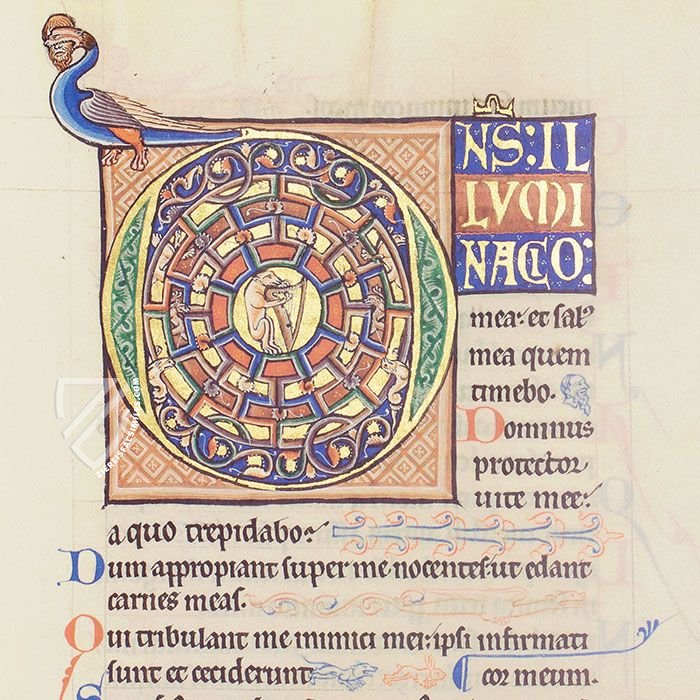 NS: IL
LUMI
NACIO:
mea: et sal9
mea quem
timebo.
Dominus
protector
uite mee:
a quo trepidabo:
Dum appropiant super me nocentes: ut edant
carnes meas.
Qui tribulant me inimici mei: ipsi infirmati
sunt et ceciderunt
cor meum.
ZIEREISFACSIMILES.COM